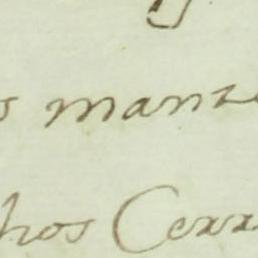 s manz
hos Cerr